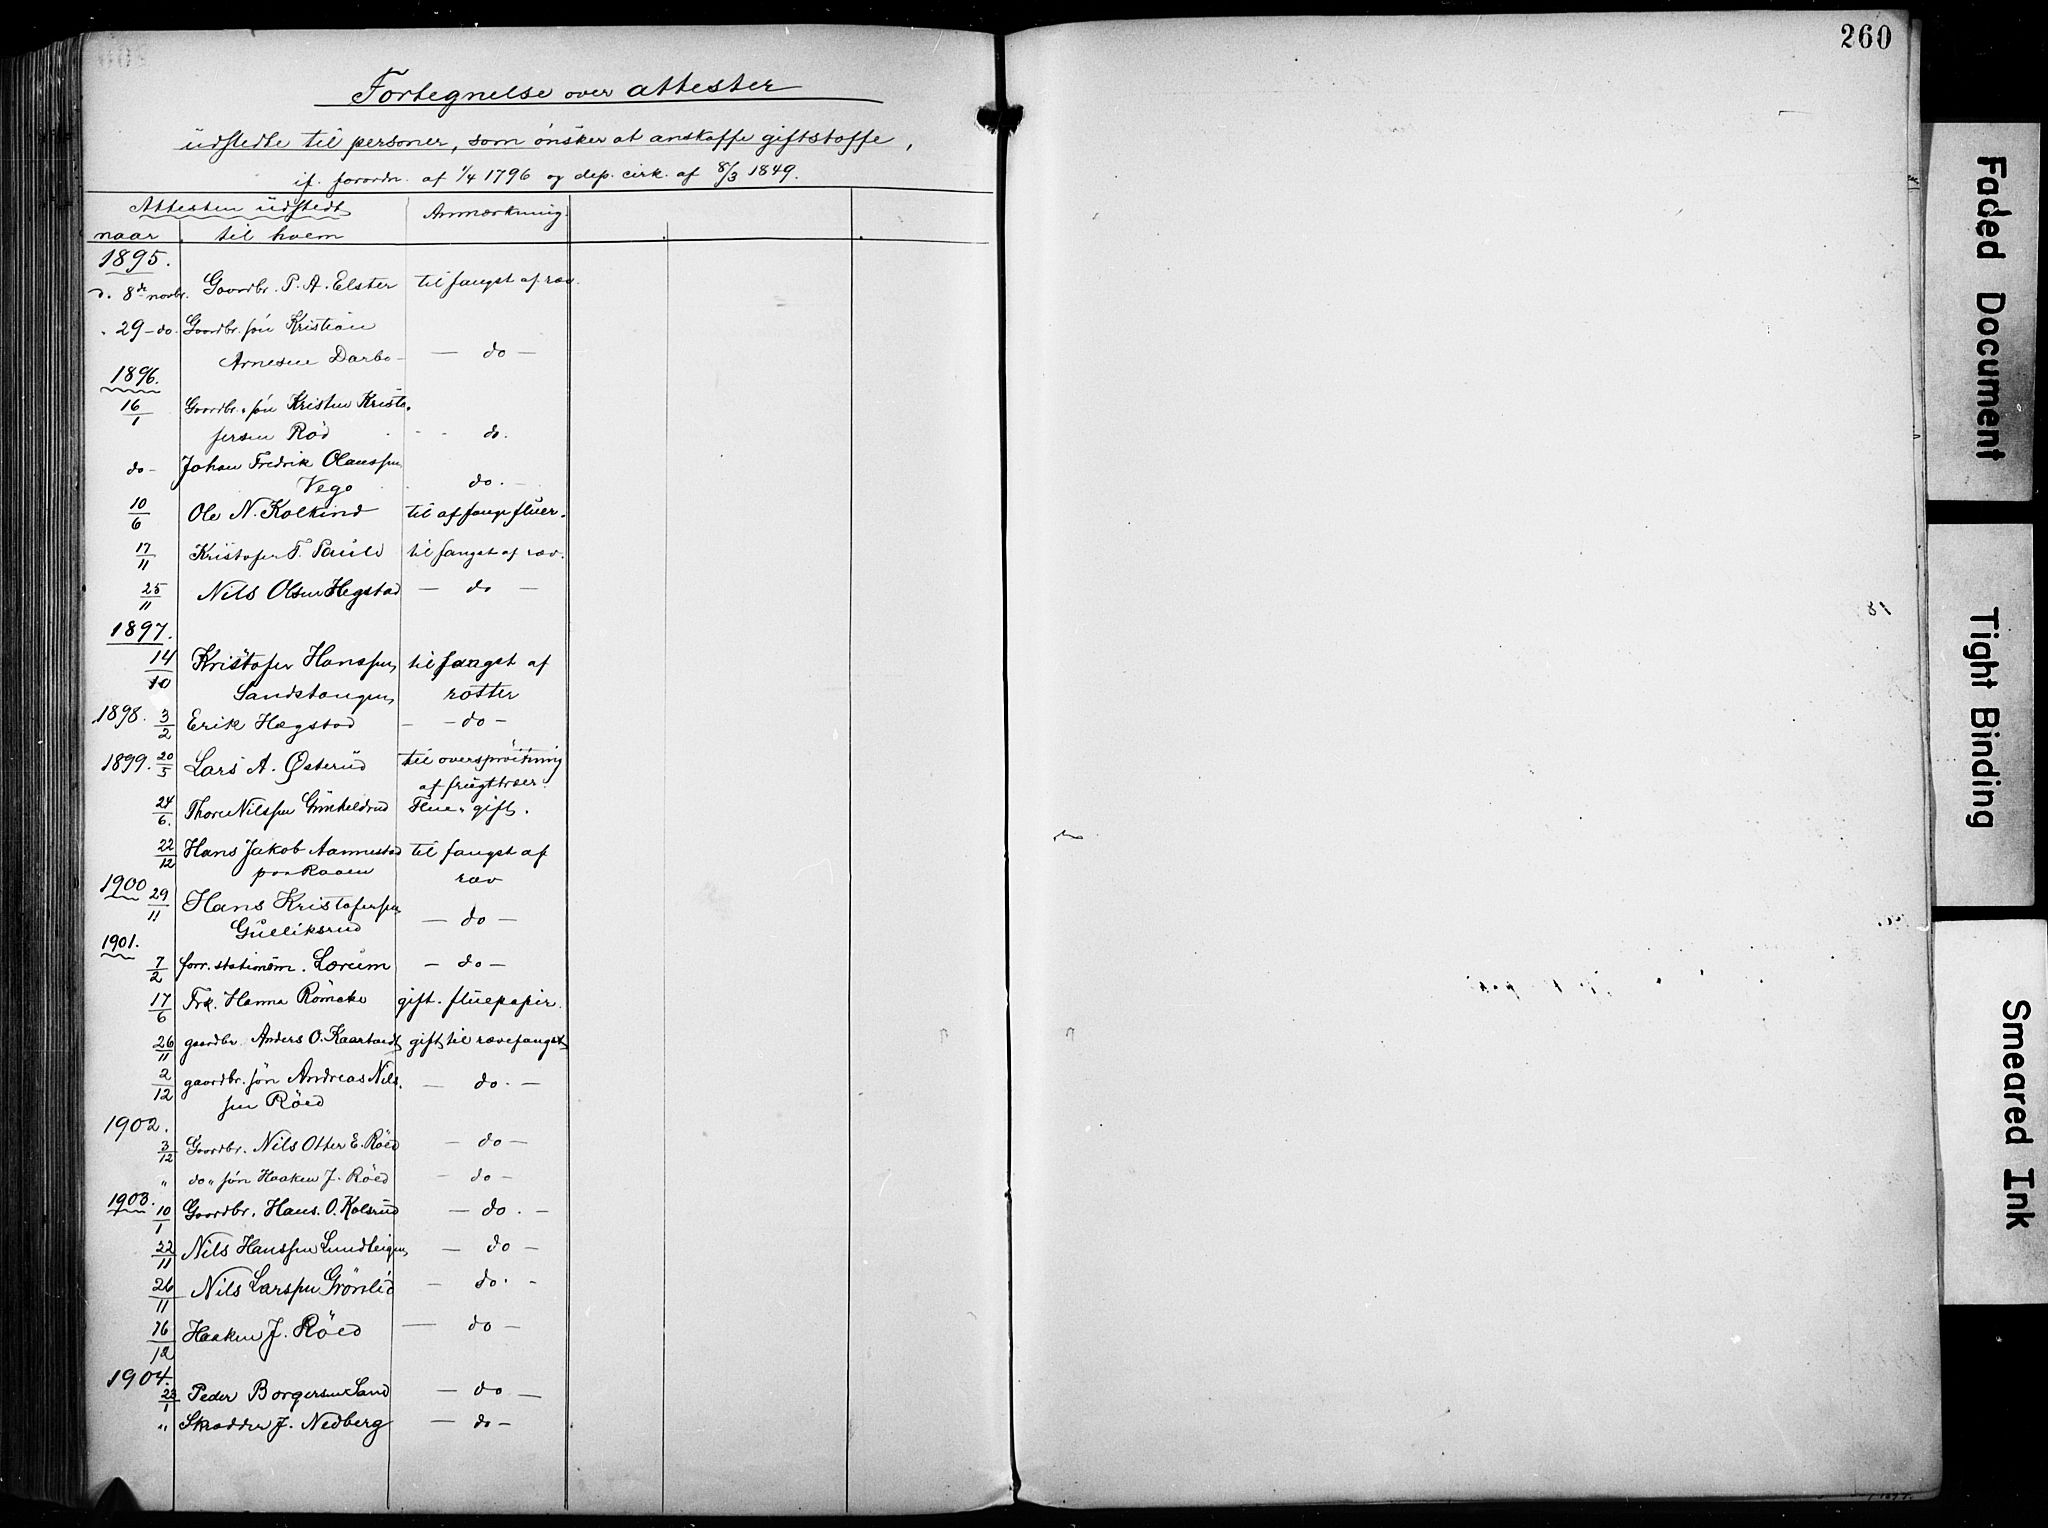 260
Fortegnelse over attester
udstedte til personer, som ønsker at anskaffe giftstoffe,
if. forordn. af 1/4 1796 og dep. cirk. af 8/3 1849.
Attesten udstedt Anmærkning.
naar til hvem
1895.
d. 8de novbr. Gaardbr. P. A. Elster til fangst af ræv.
" 29 - do. Gaardbr. søn Kristian
Arnesen Darbo - do -
1896.
16/1 Gaardbr. søn Kristen Kristo-
fersen Rød do.
do - Johan Fredrik Olaussen
Vego do. -
10/6 Ole N. Kolkind til at fange fluer.
17/11 Kristofer T. Saule til fangst af ræv.
25/11 Nils Olsen Hegstad - do -
1897.
14/10 Kristofer Hanssen til fangst af
Sandstangen rotter
1898. 3/2 Erik Hægstad - do -
1899. 20/5 Lars A. Østerud til oversprøitning
af frugttræer.
24/6. Thore Nilssen Gunheldrud Flue-gift.
22/12 Hans Jakob Aannestad til fangst af
paa Raaen ræv
1900 29/11 Hans Kristofersen - do -
Gulliksrud
1901.
7/2 forr. stationsm. Lærum - do -
17/6 Frk. Hanna Römcke gift. fluepapir.
26/11 gaardbr. Anders O. Kaartvedt gift til rævefangst
2/12 gaardbr. søn Andreas Nils- - do. -
sen Röed
1902.
3/12 Gaardbr. Nils Otter E. Röed - do -
" do " søn Haaken J. Röed - do -
1903.
10/1 Gaardbr. Hans O. Kolsrud - do. -
22/11 Nils Hanssen Lundteigen - do -
26/11 Nils Larssen Grönlid - do. -
16/12 Haaken J. Röed - do -
1904.
23/1 Peder Borgersen Sand - do -
" Skrædder J. Nedberg - do -
Faded Document
Tight Binding
Smeared Ink